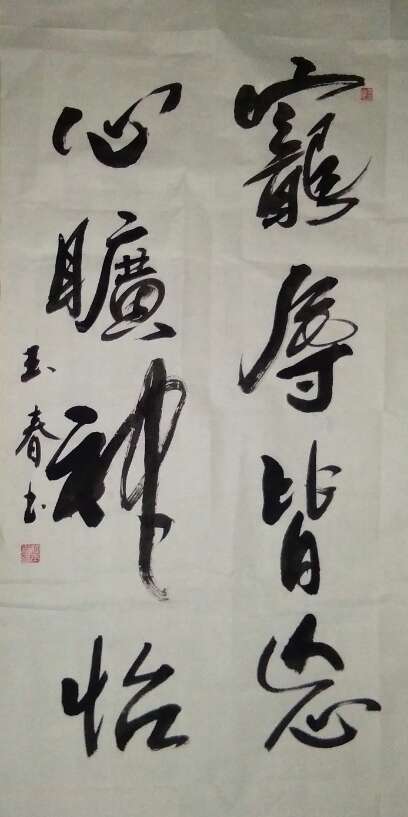 寵辱皆忘
心曠神怡
玉春书